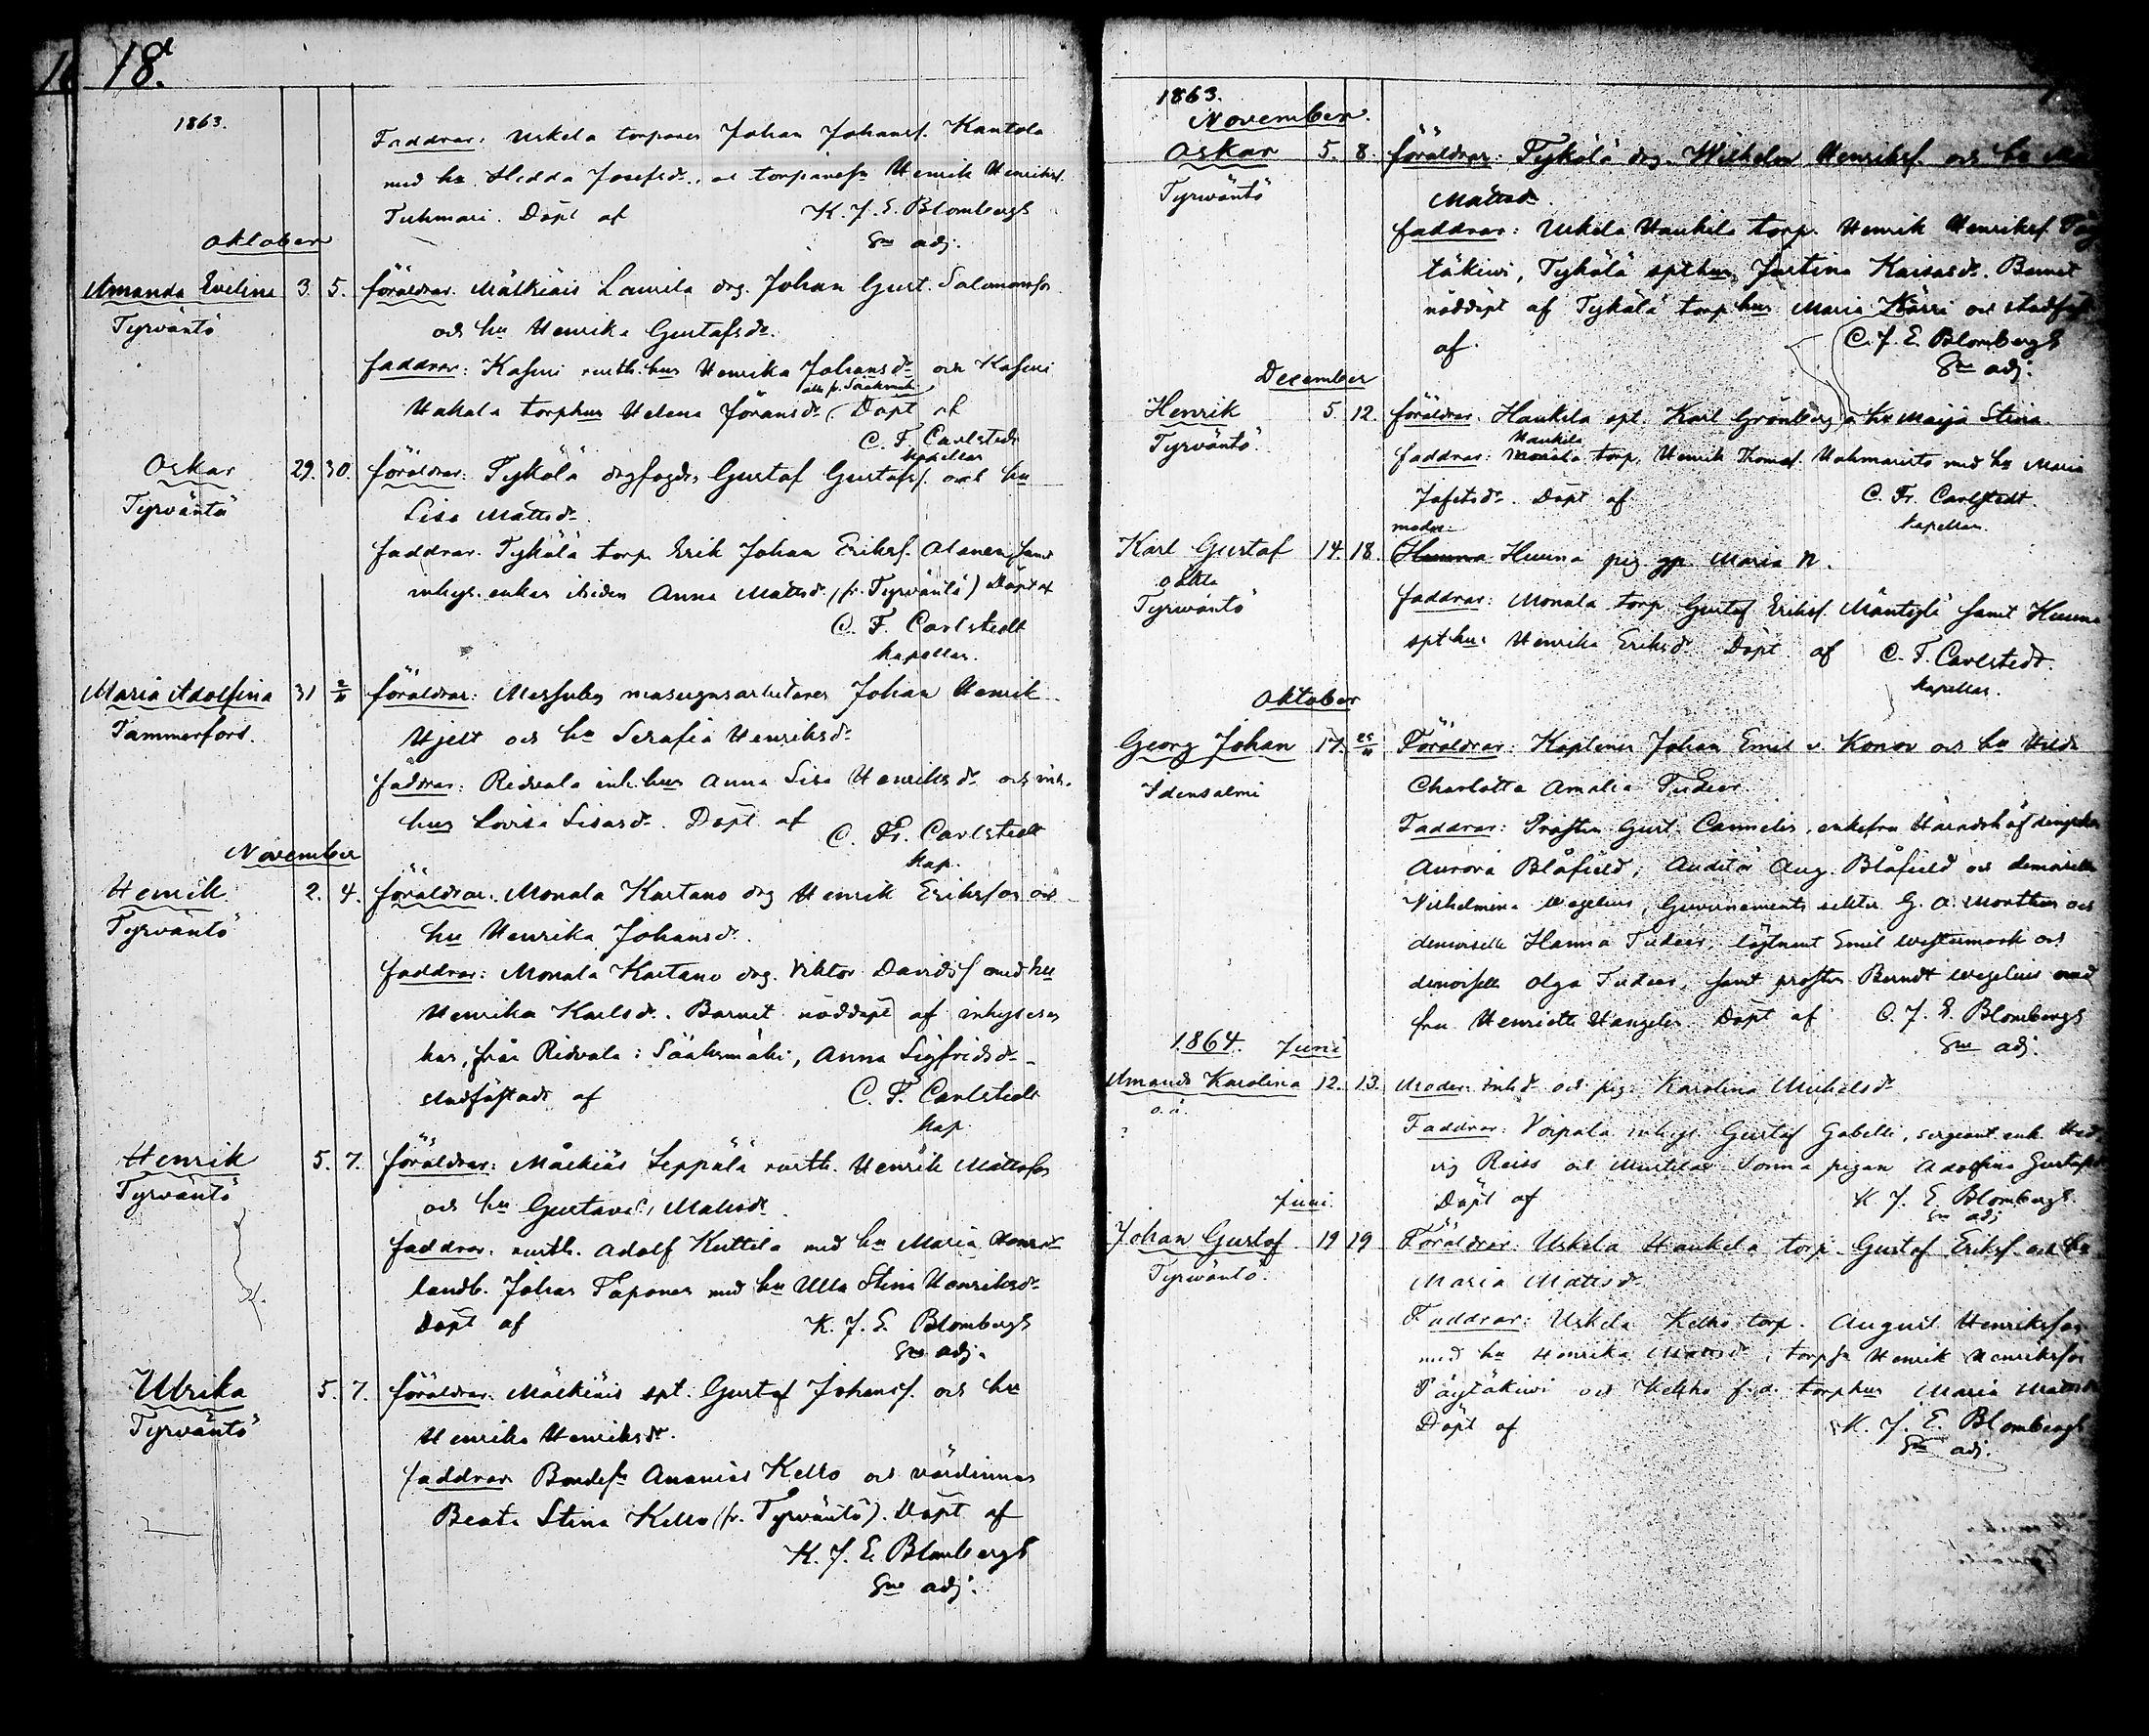 18.
1863.
Faddrar: Uskela torparen Johan Johanss. Kantola
med hu Hedda Josefsdr. o torparesn Henrik Henrikss.
Tuhmari. Döpt af K. J. E. Blombergh
Sne adj.
Oktober
Amanda Evelina 3. 5. föräldrar. Mälkiäis Laurila drg. Johan Gust. Salomonsson
Tyrväntö och hu Henrika Gustafsdr.
faddrar: hus Henrika Johansdr och
Hakala torphus Helena Göransdr. Döpt af
C. F. Carlstedt
kapellan
Oskar 29. 30. föräldrar: Tykölä Gustaf Gustafss. och hu
Tyrväntö Lisa Mattsdr.
faddrar. Tykölä torp. Erik Johan Erikss. Alanen, samt
inhys. enkan Anna Mattsdr. (fr. Tyrväntö) Döpt af
C. F. Carlstedt
kapellan.
Maria Adolfina 31 2/11 föräldrar: Messuby masugnsarbetaren Johan Henrik
Tammerfors. Hjelt och hu Serafia Henriksdr
fadrar: Ridvala inh. hus Anna Lisa Henriksdr och inh.
hus Lovisa Lisasdr. Döpt af C. Fr. Carlstedt
kap.
November
Henrik 2. 4. föräldrar. Monala Kartano drg Henrik Eriksson och
Tyrväntö hu Henrika Johansdr.
faddrar: Monala Kartano drg. Viktor Davidss. med hu
Henrika Karlsdr. Barnet nöddöpt af inhyses
hus, från Ridvala i Sääksmäki, Anna Sigfridsdr
stadfästadt af C. F. Carlstedt
kap.
Henrik 5. 7. föräldrar: Mälkiäis Seppälä rusth. Henrik Mattsson
Tyrväntö och hu Gustava Matsdr
faddrar: rusth. Adolf Kuttila med hu Maria
landb. Johan Taponen med hu Ulla Stina Henriksdr
Döpt af K. J. E. Blombergh
Sne adj.
Ulrika 5. 7. föräldrar. Mälkiäis spt. Gustaf Johanss. och hu
Tyrväntö Henrika Henriksdr.
faddrar Ananias Kelho och värdinnan
Beata Stina Kelho (fr. Tyrväntö). Döpt af
K. J. E. Blombergh
Sne adj.
1863.
November.
Oskar 5. 8. föräldrar: Tykölä drg. Wilhelm Henrikss. och hu
Tyrväntö Mattsdr.
faddrar: Uskela Haukila torp. Henrik Henrikss.
täkivi, Tykölä spthus Justina Kaisasdr. Barnet
nöddöpt af Tykölä torphus Maria Kärri och
af C. J. E. Blombergh
Sne adj.
December
Henrik 5. 12. föräldrar. Haukila spt. Karl Grönberg o hu Maija Stina.
Tyrväntö. Haukila
faddrar: Monala torp. Henrik Thomass. med hu Maria
Jafetsdr. Döpt af C. Fr. Carlstedt
kapellan.
moder:
Karl Gustaf 14. 18. Huuna pig. Maria N.
oäkta
Tyrväntö faddrar: Monala torp. Gustaf Erikss. Mäntylä samt Huuna
spthus Henrika Eriksdr Döpt af C. F. Carlstedt.
kapellan.
Oktober
Georg Johan 17. Föräldrar: Kaptenen Johan Emil v. Konov och hu Hilda
Idensalmi Charlotta Amalia Tudeer
Faddrar: Prosten Gust. Cannelin, enkefru
Aurora Blåfield; Auditör Aug. Blåfield och demoiselle
Vilhelmina Wegelius, Guvernements sekter G. A. och
demoiselle Hanna Tudeer, löjtnant Emil Westermark och
demoiselle Olga Tudeer, samt prosten Berndt Wegelius med
fru Henriette Döpt af C. J. E. Blombergh
Sne adj.
1864. Juni
Amanda Karolina 12. 13. Moder: och pig. Karolina Michelsdr
o. ä. Faddrar: Voipala inhys. Gustaf Gabelli, sergeant enk. Hed-
vig Reiss och pigan Adolfina Gustafsdr
Döpt af K. J. E. Blombergh
Sne adj
Juni.
Johan Gustaf 19 19 Föräldrar: Uskela Haukila torp. Gustaf Erikss. och hu
Tyrväntö. Maria Mattsdr
Faddrar: Uskela Kelho torp. August Henriksson
med hu Henrika Mattsdr, torpsn Henrik Henriksson
Päytäkivi och Kelho f.d. torphus Maria Mattsdr
Döpt af K. J. E. Blombergh
Sne adj.